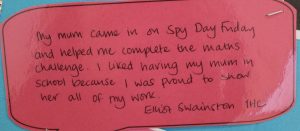 My mum came in on Spy Day Friday
and helped me complete the maths
challenge. I liked having my mum in
school because I was proud to show
her all of my work.
Elliot Swainston 1HC